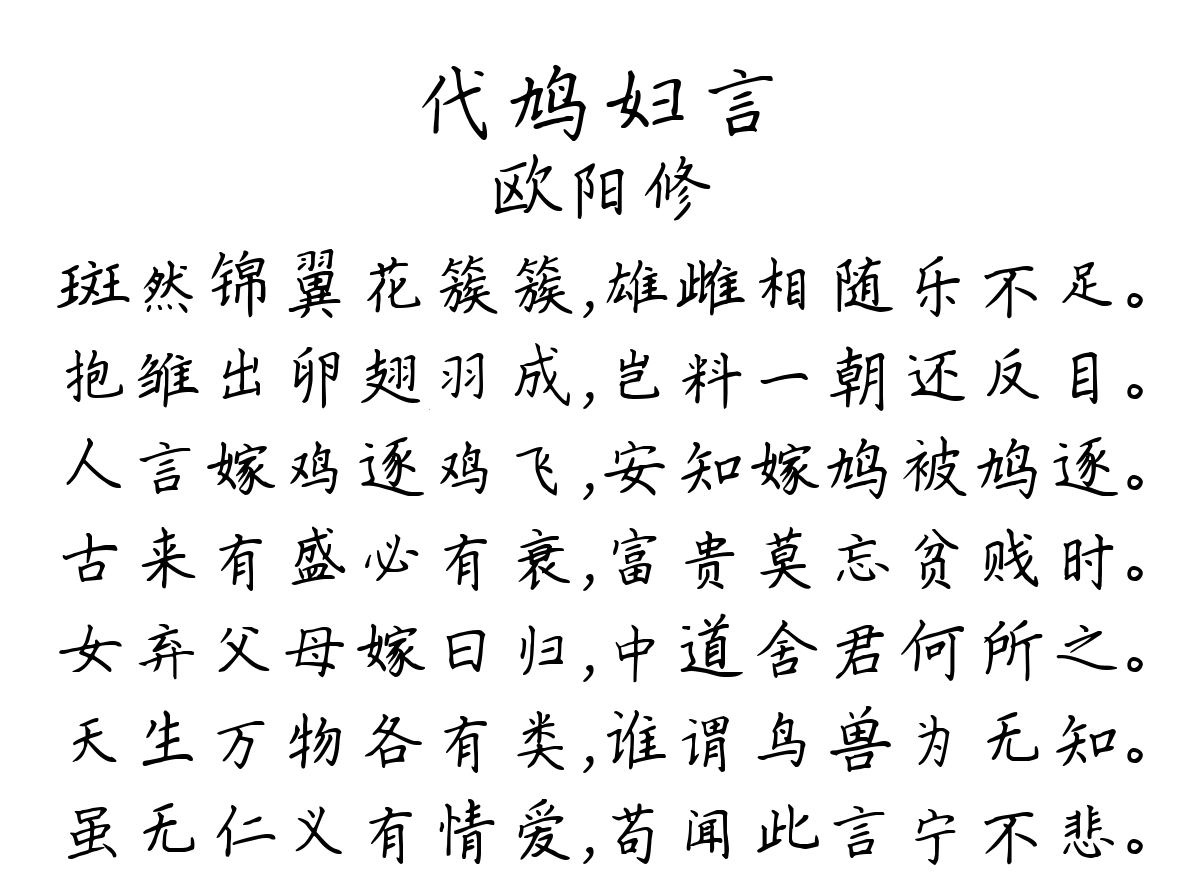 代鸠妇言
欧阳修
斑然锦翼花簇簇,雄雌相随乐不足。
抱雏出卵翅羽成,岂料一朝还反目。
人言嫁鸡逐鸡飞,安知嫁鸠被鸠逐。
古来有盛必有衰,富贵莫忘贫贱时。
女弃父母嫁曰归,中道舍君何所之。
天生万物各有类,谁谓鸟兽为无知。
虽无仁义有情爱,苟闻此言宁不悲。